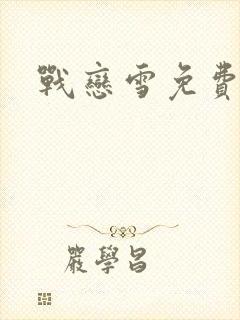 戰戀雪免費
嚴學昌